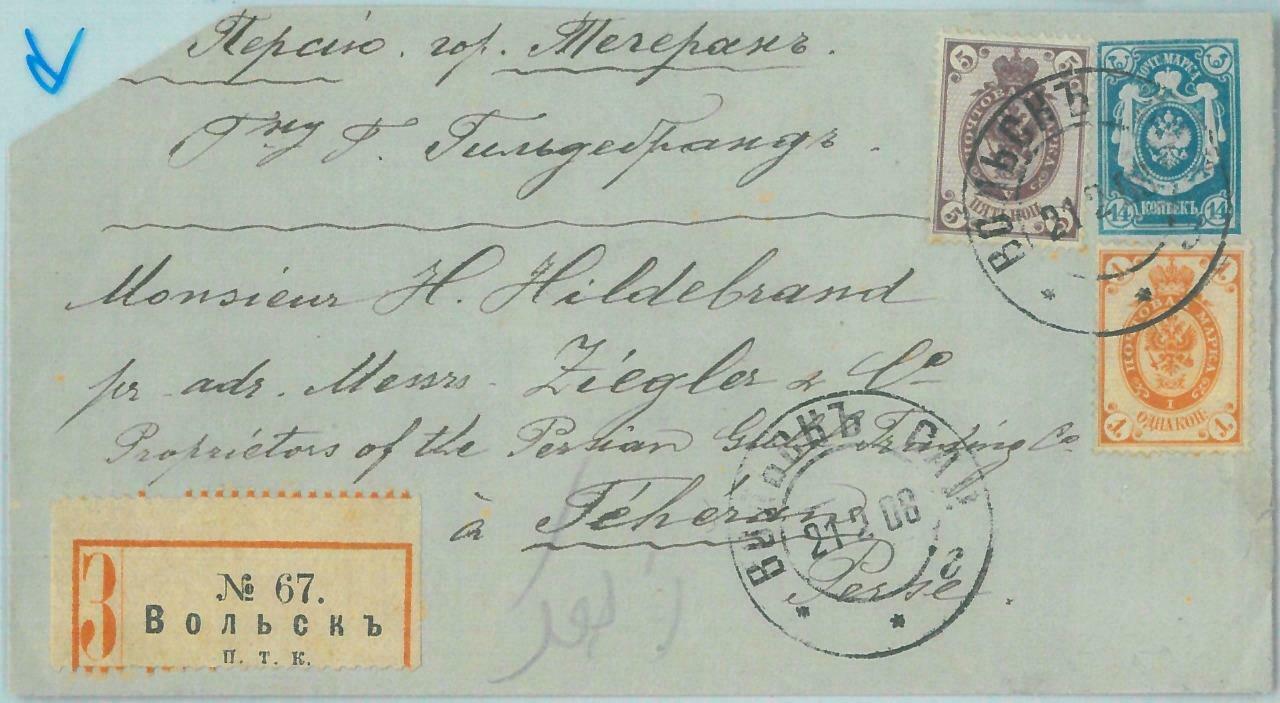 Персію. гор. Тегеранъ.
Гну Г. Гильдебрандъ.
Monsieur H. Hildebrand
pr adr. Messrs. Ziégler & Co
Propriétors of the Persian Gulf Trading Co
à Téhéran
Perse.
5 5
ПОЧТОВАЯ МАРКА
V
5 ПЯТЬ КОП. 5
ПОЧТ. МАРКА
14 КОПѢЕКЪ 14
1 1
ПОЧТОВАЯ МАРКА
I
1 ОДНА КОП. 1
ВОЛЬСКЪ
21 2
ВОЛЬСКЪ САР.
21 2 08
З
№ 67.
Вольскъ
П. Т. К.